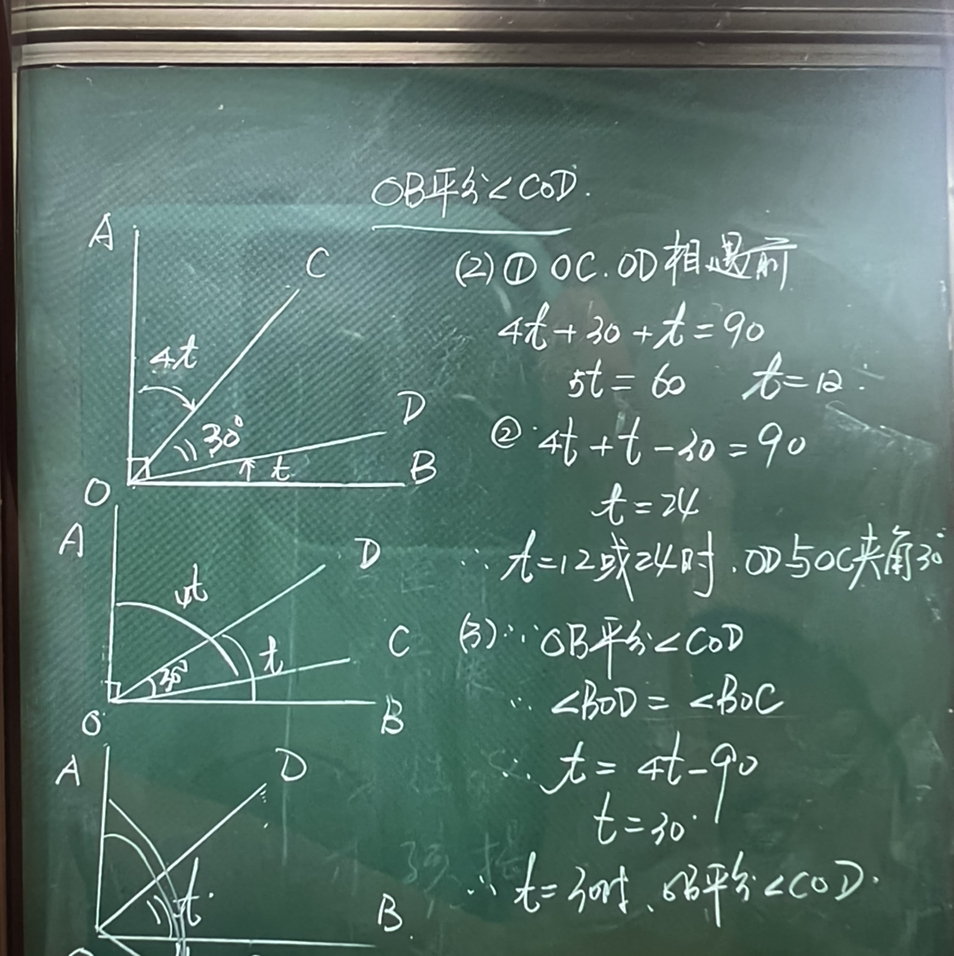 OB平分∠COD.
A
C
4t
30°
D
t
B
O
(2)① OC.OD相遇前
4t+30+t=90
5t=60 t=12.
② 4t+t-30=90
t=24
∴ t=12或24时.OD与OC夹角30°
A
D
4t
C
t
30°
B
O
(3)∵ OB平分∠COD
∴ ∠BOD=∠BOC
∴ t=4t-90
t=30.
∴ t=30时、OB平分∠COD.
A
D
t.
B